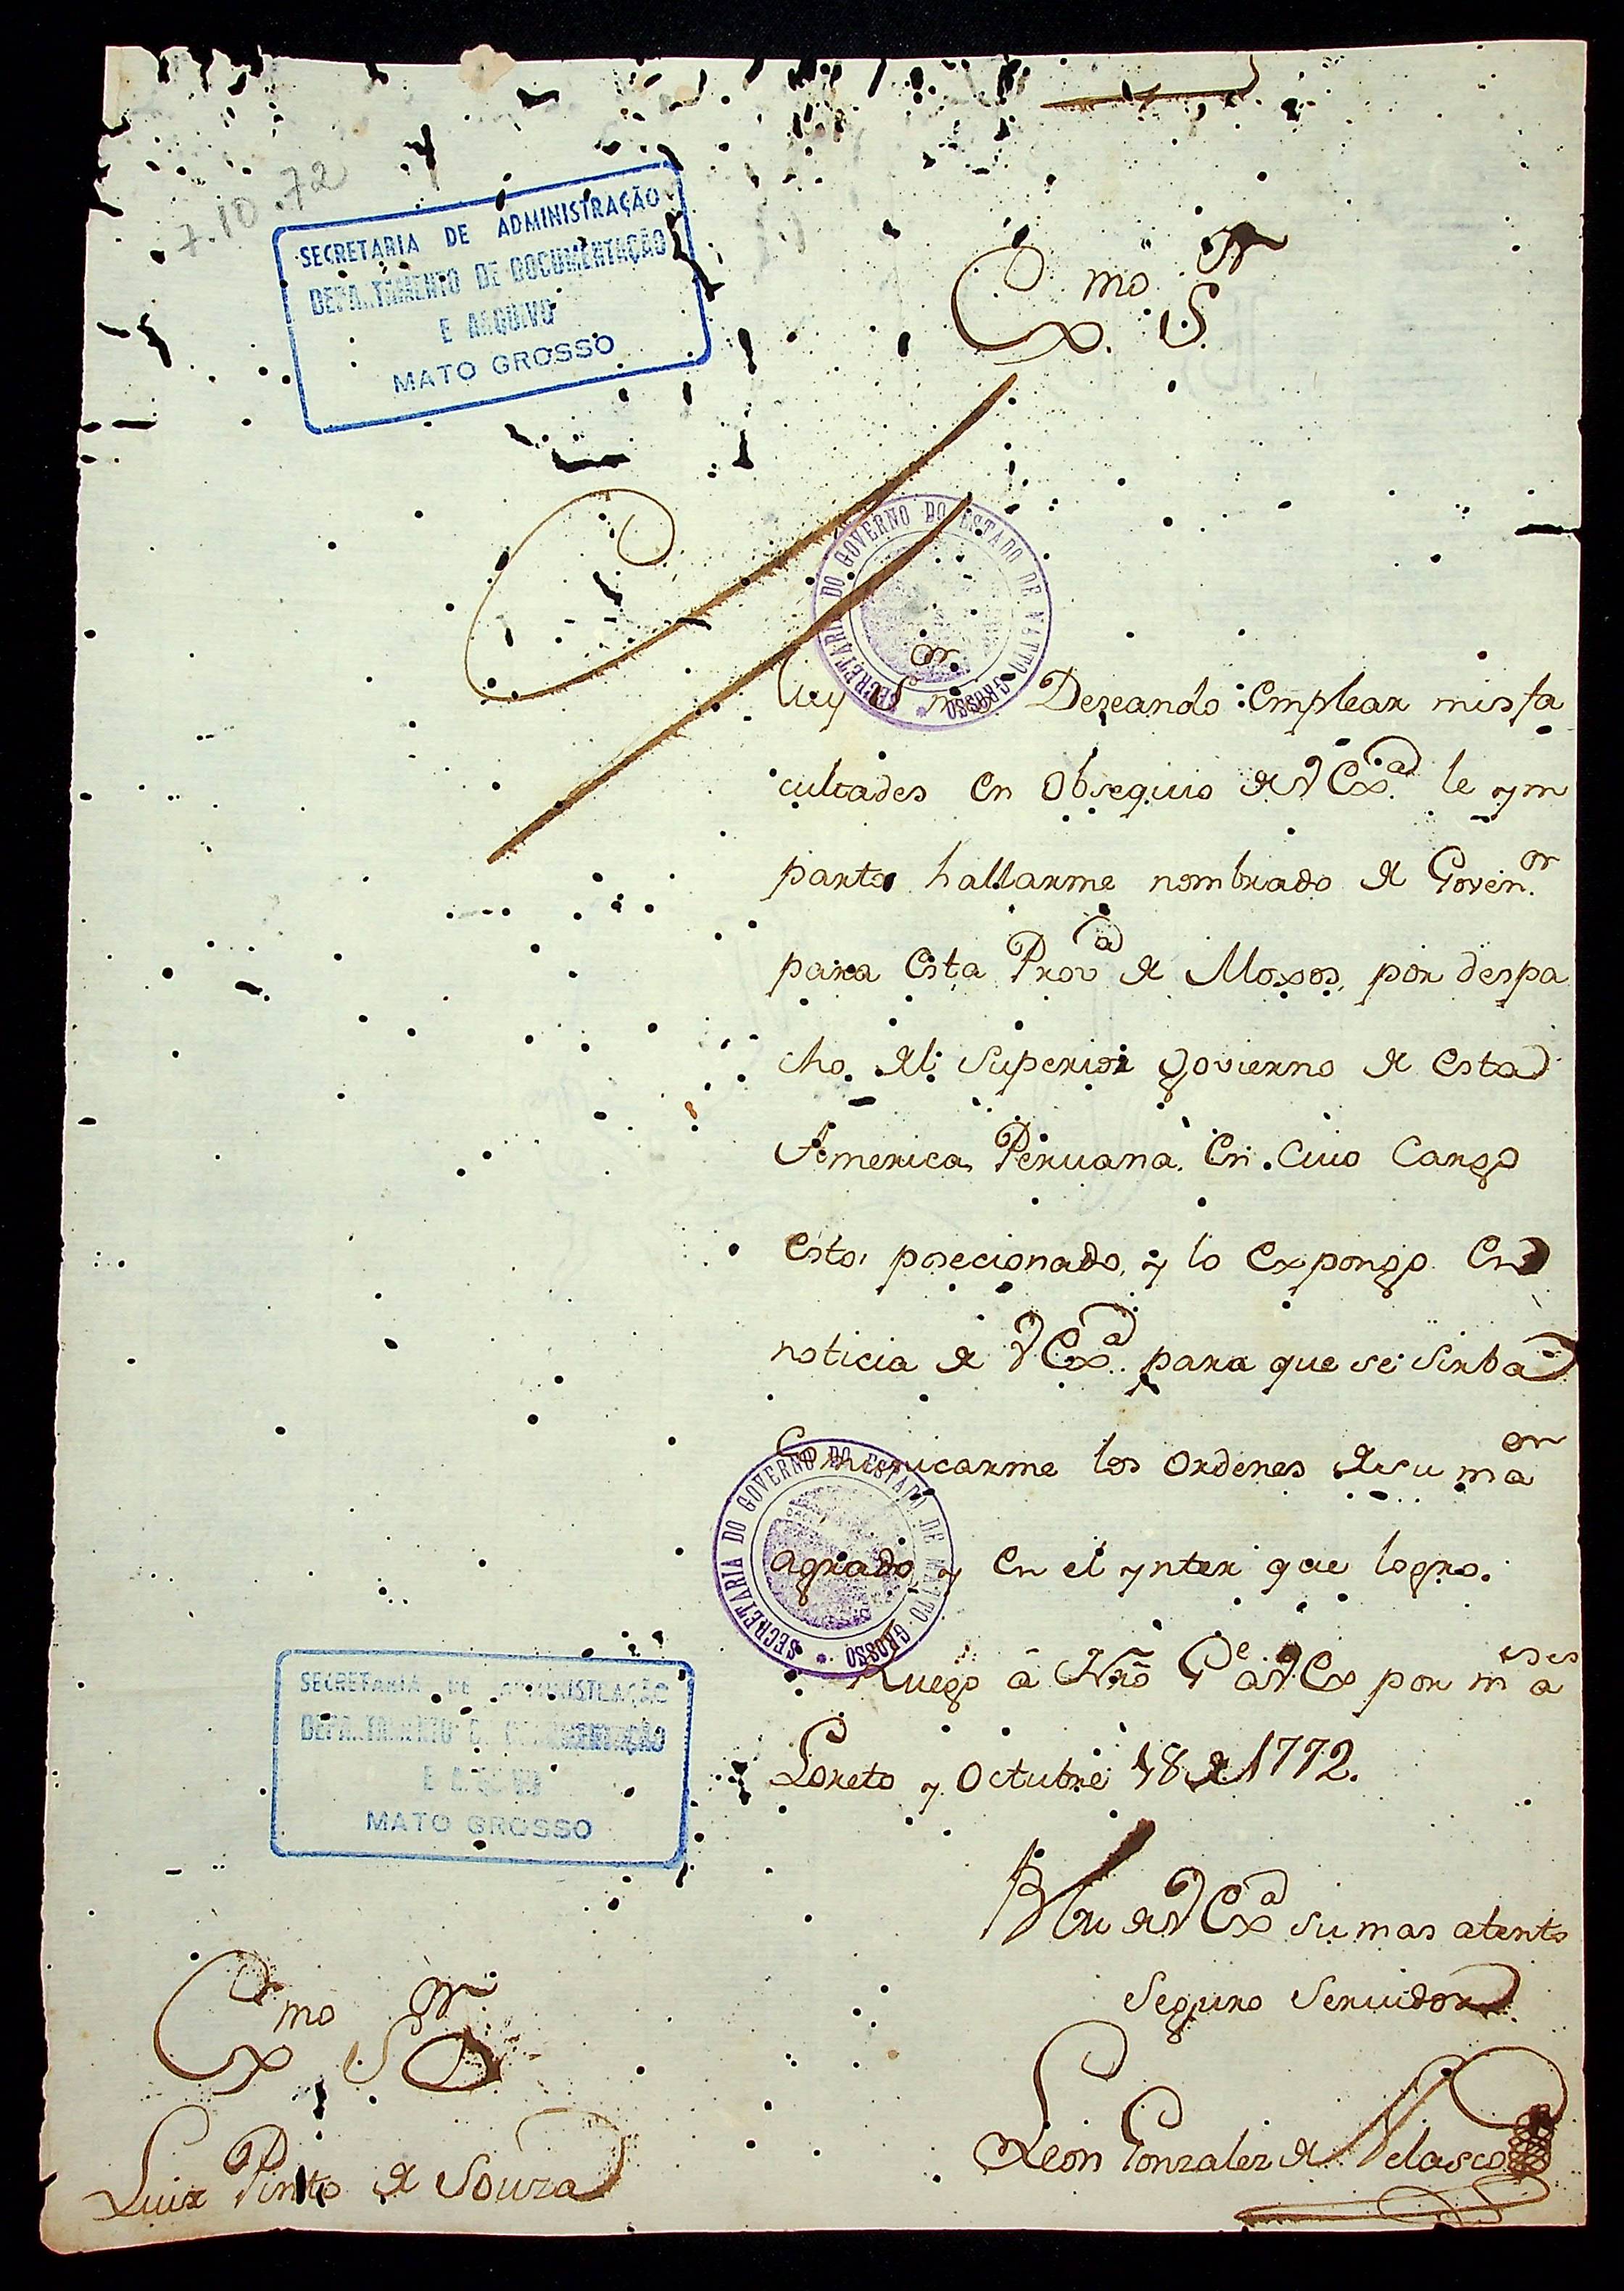 7.10.72
SECRETARIA DE ADMINISTRAÇÃO
DEPARTAMENTO DE DOCUMENTAÇÃO
E ARQUIVO
MATO GROSSO
Exmo. Sor.
SECRETARIA DO GOVERNO DO ESTADO DE MATTO GROSSO
Muy Sor. mio Deseando emplear mis fa
cultades en obsequio de VExa. le ym
parto hallarme nombrado de Goven.or
para esta Prova de Moxos, por despa
cho del Superior govierno de esta
America Peruana. En cuio cargo
estoi posecionado, y lo expongo en
noticia de VExa. para que se sirba
Comunicarme los ordenes de su maor
agrado y en el ynter que logro.
SECRETARIA DO GOVERNO DO ESTADO DE MATTO GROSSO
Ruego â Nrõ Ge a VEx por ms as
Loreto y Octubre 18 de 1772.
SECRETARIA DE ADMINISTRAÇÃO
DEPARTAMENTO DE DOCUMENTAÇÃO
E ARQUIVO
MATO GROSSO
de VExa su mas atento
Seguro Servidor
Exmo Sor
Leon Gonzalez de Velasco
Luiz Pinto de Souza